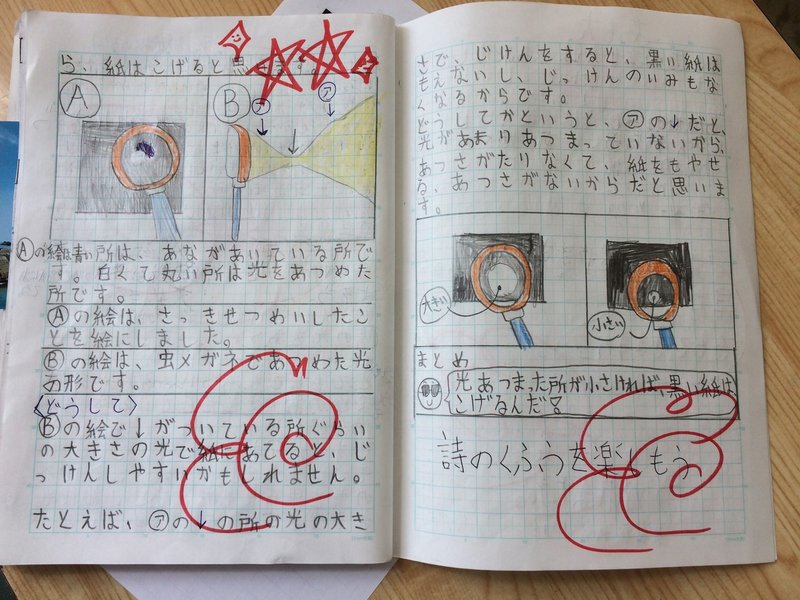 ら、紙はこげると思います。
A
B
ア
ア
Aの絵は青い所は、あながあいている所で
す。白くて丸い所は光をあつめた
所です。
Aの絵は、さっきせつめいしたこ
とを絵にしました。
Bの絵は、虫メガネであつめた光
の形です。
〈どうして〉
Bの絵で↓がついている所ぐらい
の大きさの光で紙にあてると、じ
っけんしやすいかもしれません。
たとえば、アの↓の所の光の大き
さで、じけんをすると、黒い紙は
もえないし、じっけんのいみもな
くなるからです。
どうしてかというと、アの↓だと、
光があまりあつまっていないから、
あつさがたりなくて、紙をもやせ
る、あつさがないからだと思いま
す。
大きい
小さい
まとめ
光あつまった所が小さければ、黒い紙は
こげるんだ!
詩のくふうを楽しもう